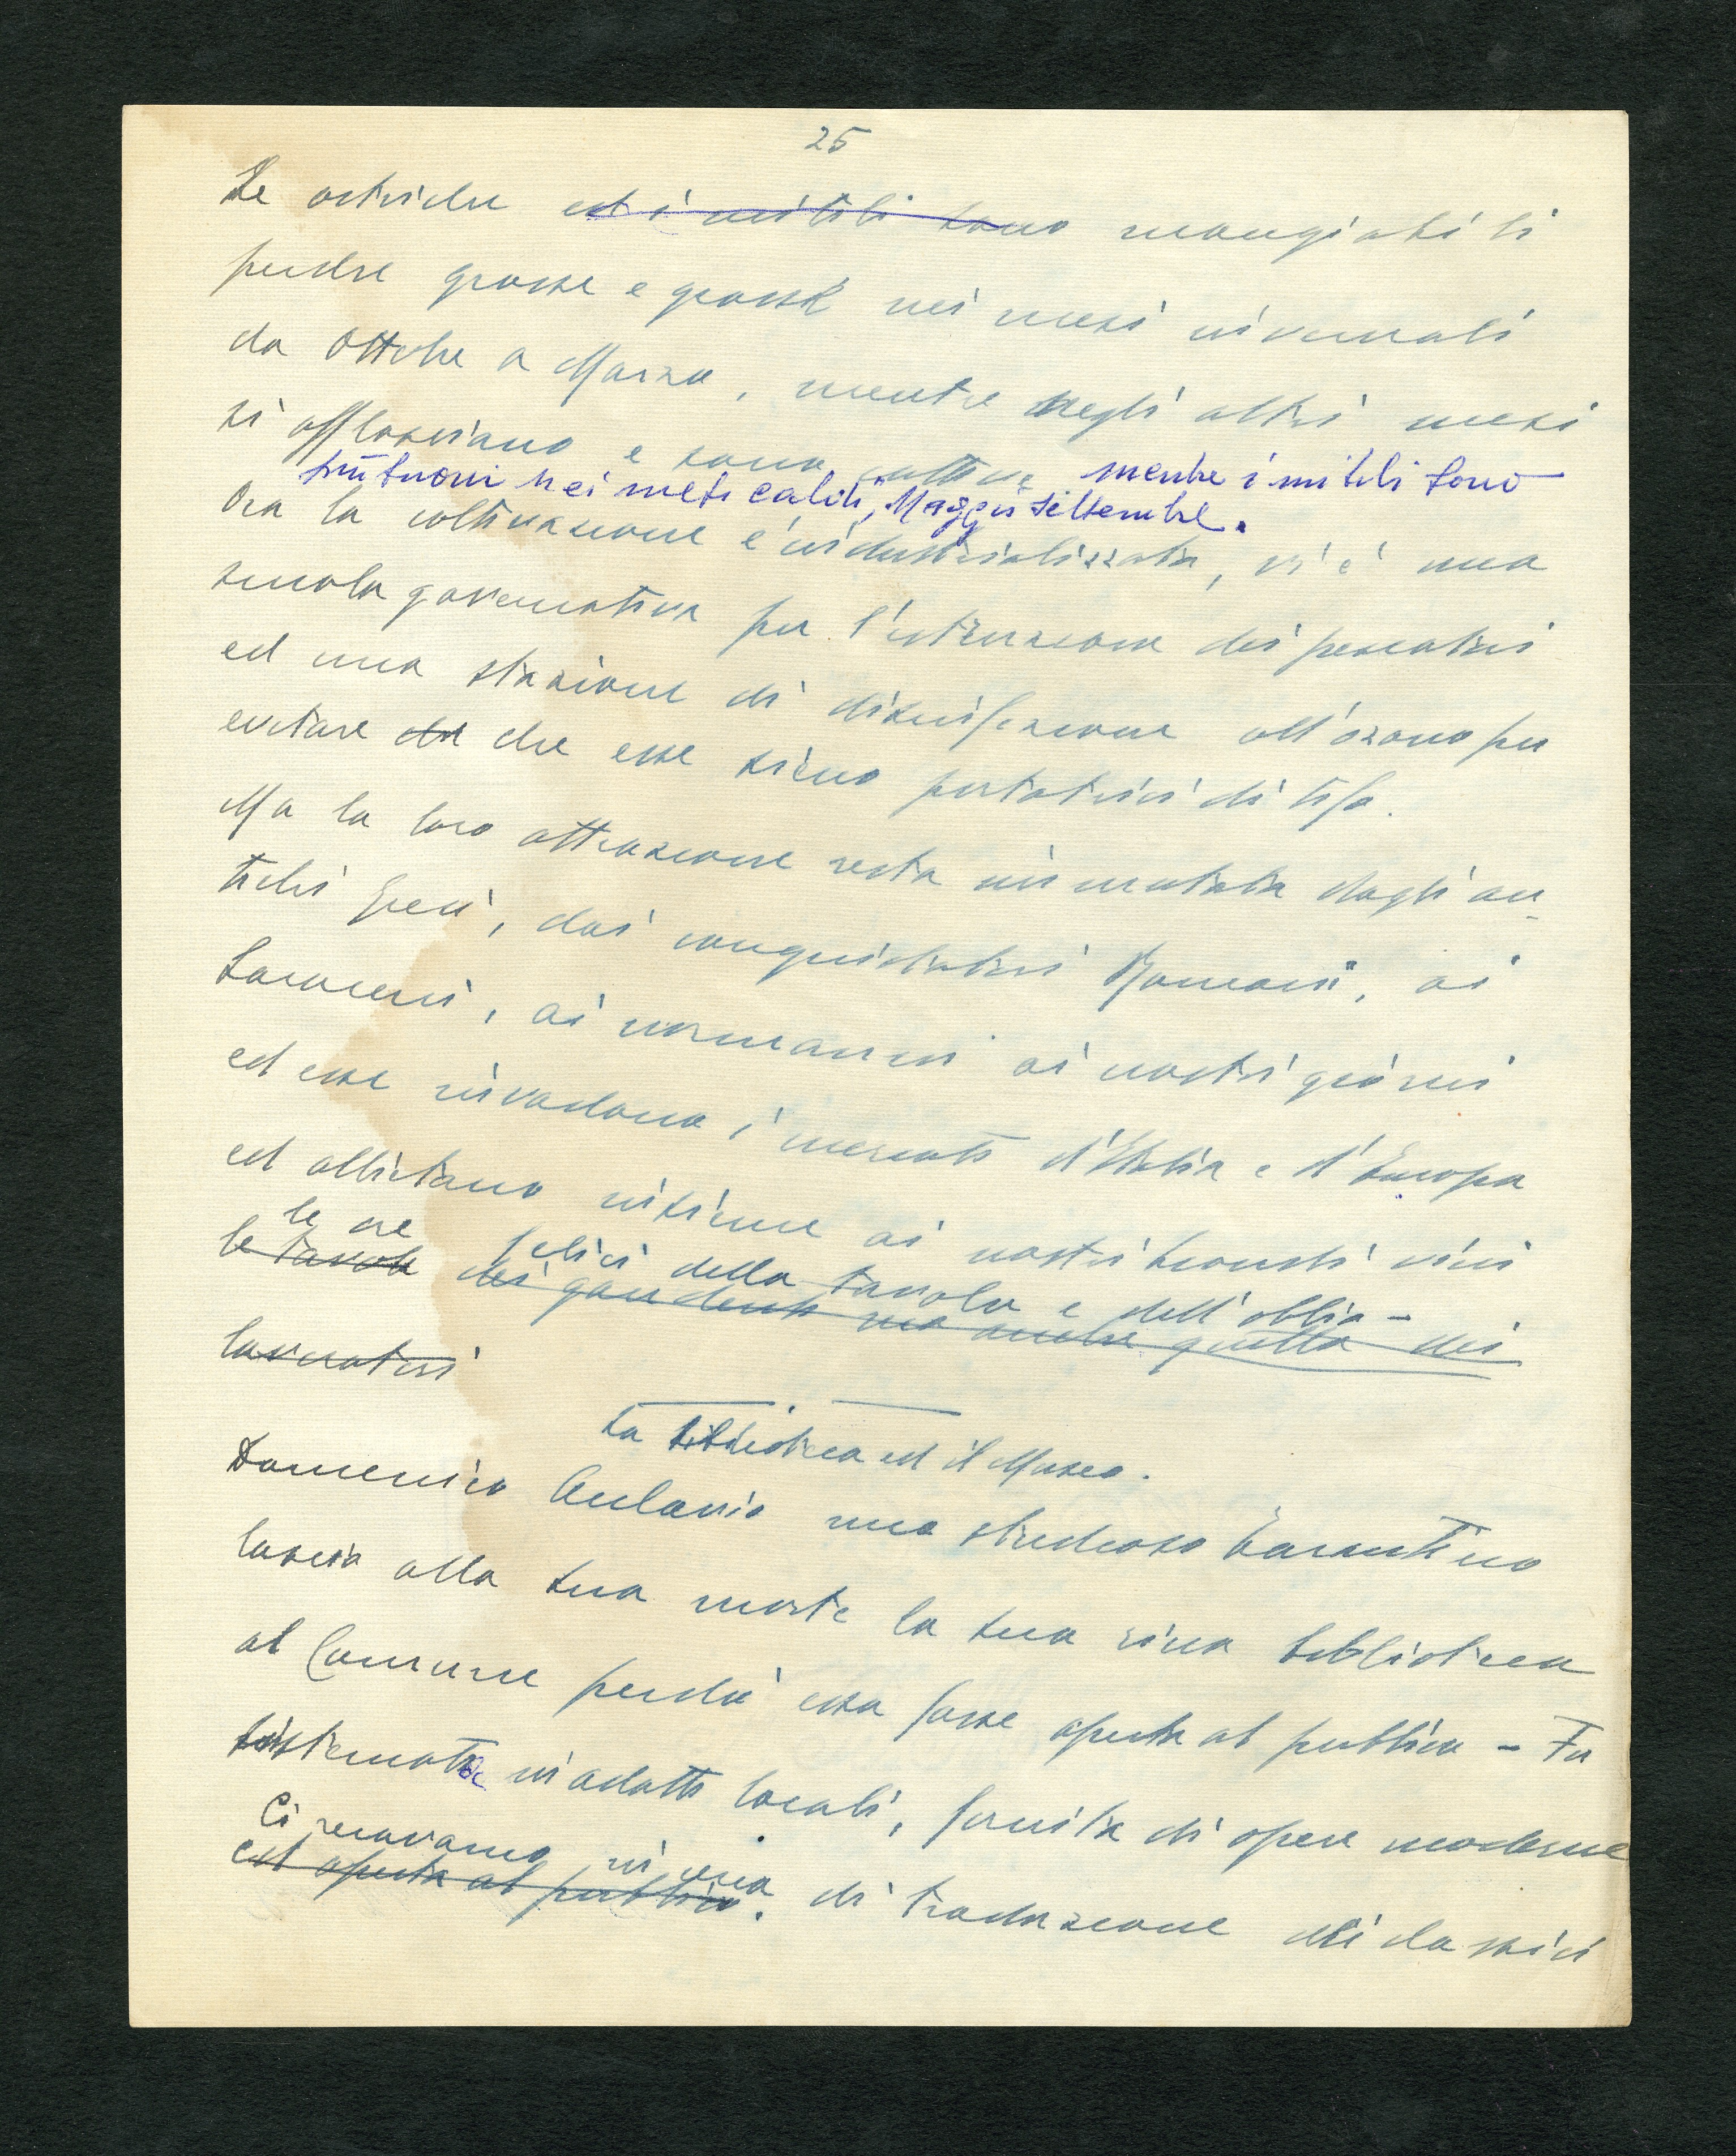 25
Le ostriche ed i mitili sono mangiabili
perchè grosse e grasse nei mesi invernali
da Ottobre a Marzo, mentre negli altri mesi
si afflosciano e sono cattive mentre i mitili sono
più buoni nei mesi caldi, Maggio Settembre.
Ora la coltivazione è industrializzata, vi è una
scuola governativa per l'istruzione dei pescatori
ed una stazione di disinfezione all'ozono per
evitare che che esse sieno portatrici di tifo.
Ma la loro attrazione resta immutata dagli an-
tichi Greci, dai conquistatori Romani, ai
Saraceni, ai normanni ai nostri giorni
ed esse invadono i mercati d'Italia e d'Europa
ed allietano insieme ai nostri biondi vini
le ore felici della tavola e dell'oblio -
le tavole dei gaudenti ma anche quella dei
lavoratori
La biblioteca ed il Museo.
Domenico Acclavio uno studioso tarantino
lascia alla sua morte la sua ricca biblioteca
al Comune perchè essa fosse aperta al pubblico - Fu
sistemata in adatti locali, fornita di opere moderne
Ci recavamo in cerca di traduzione dei classici
ed aperta al pubblico.